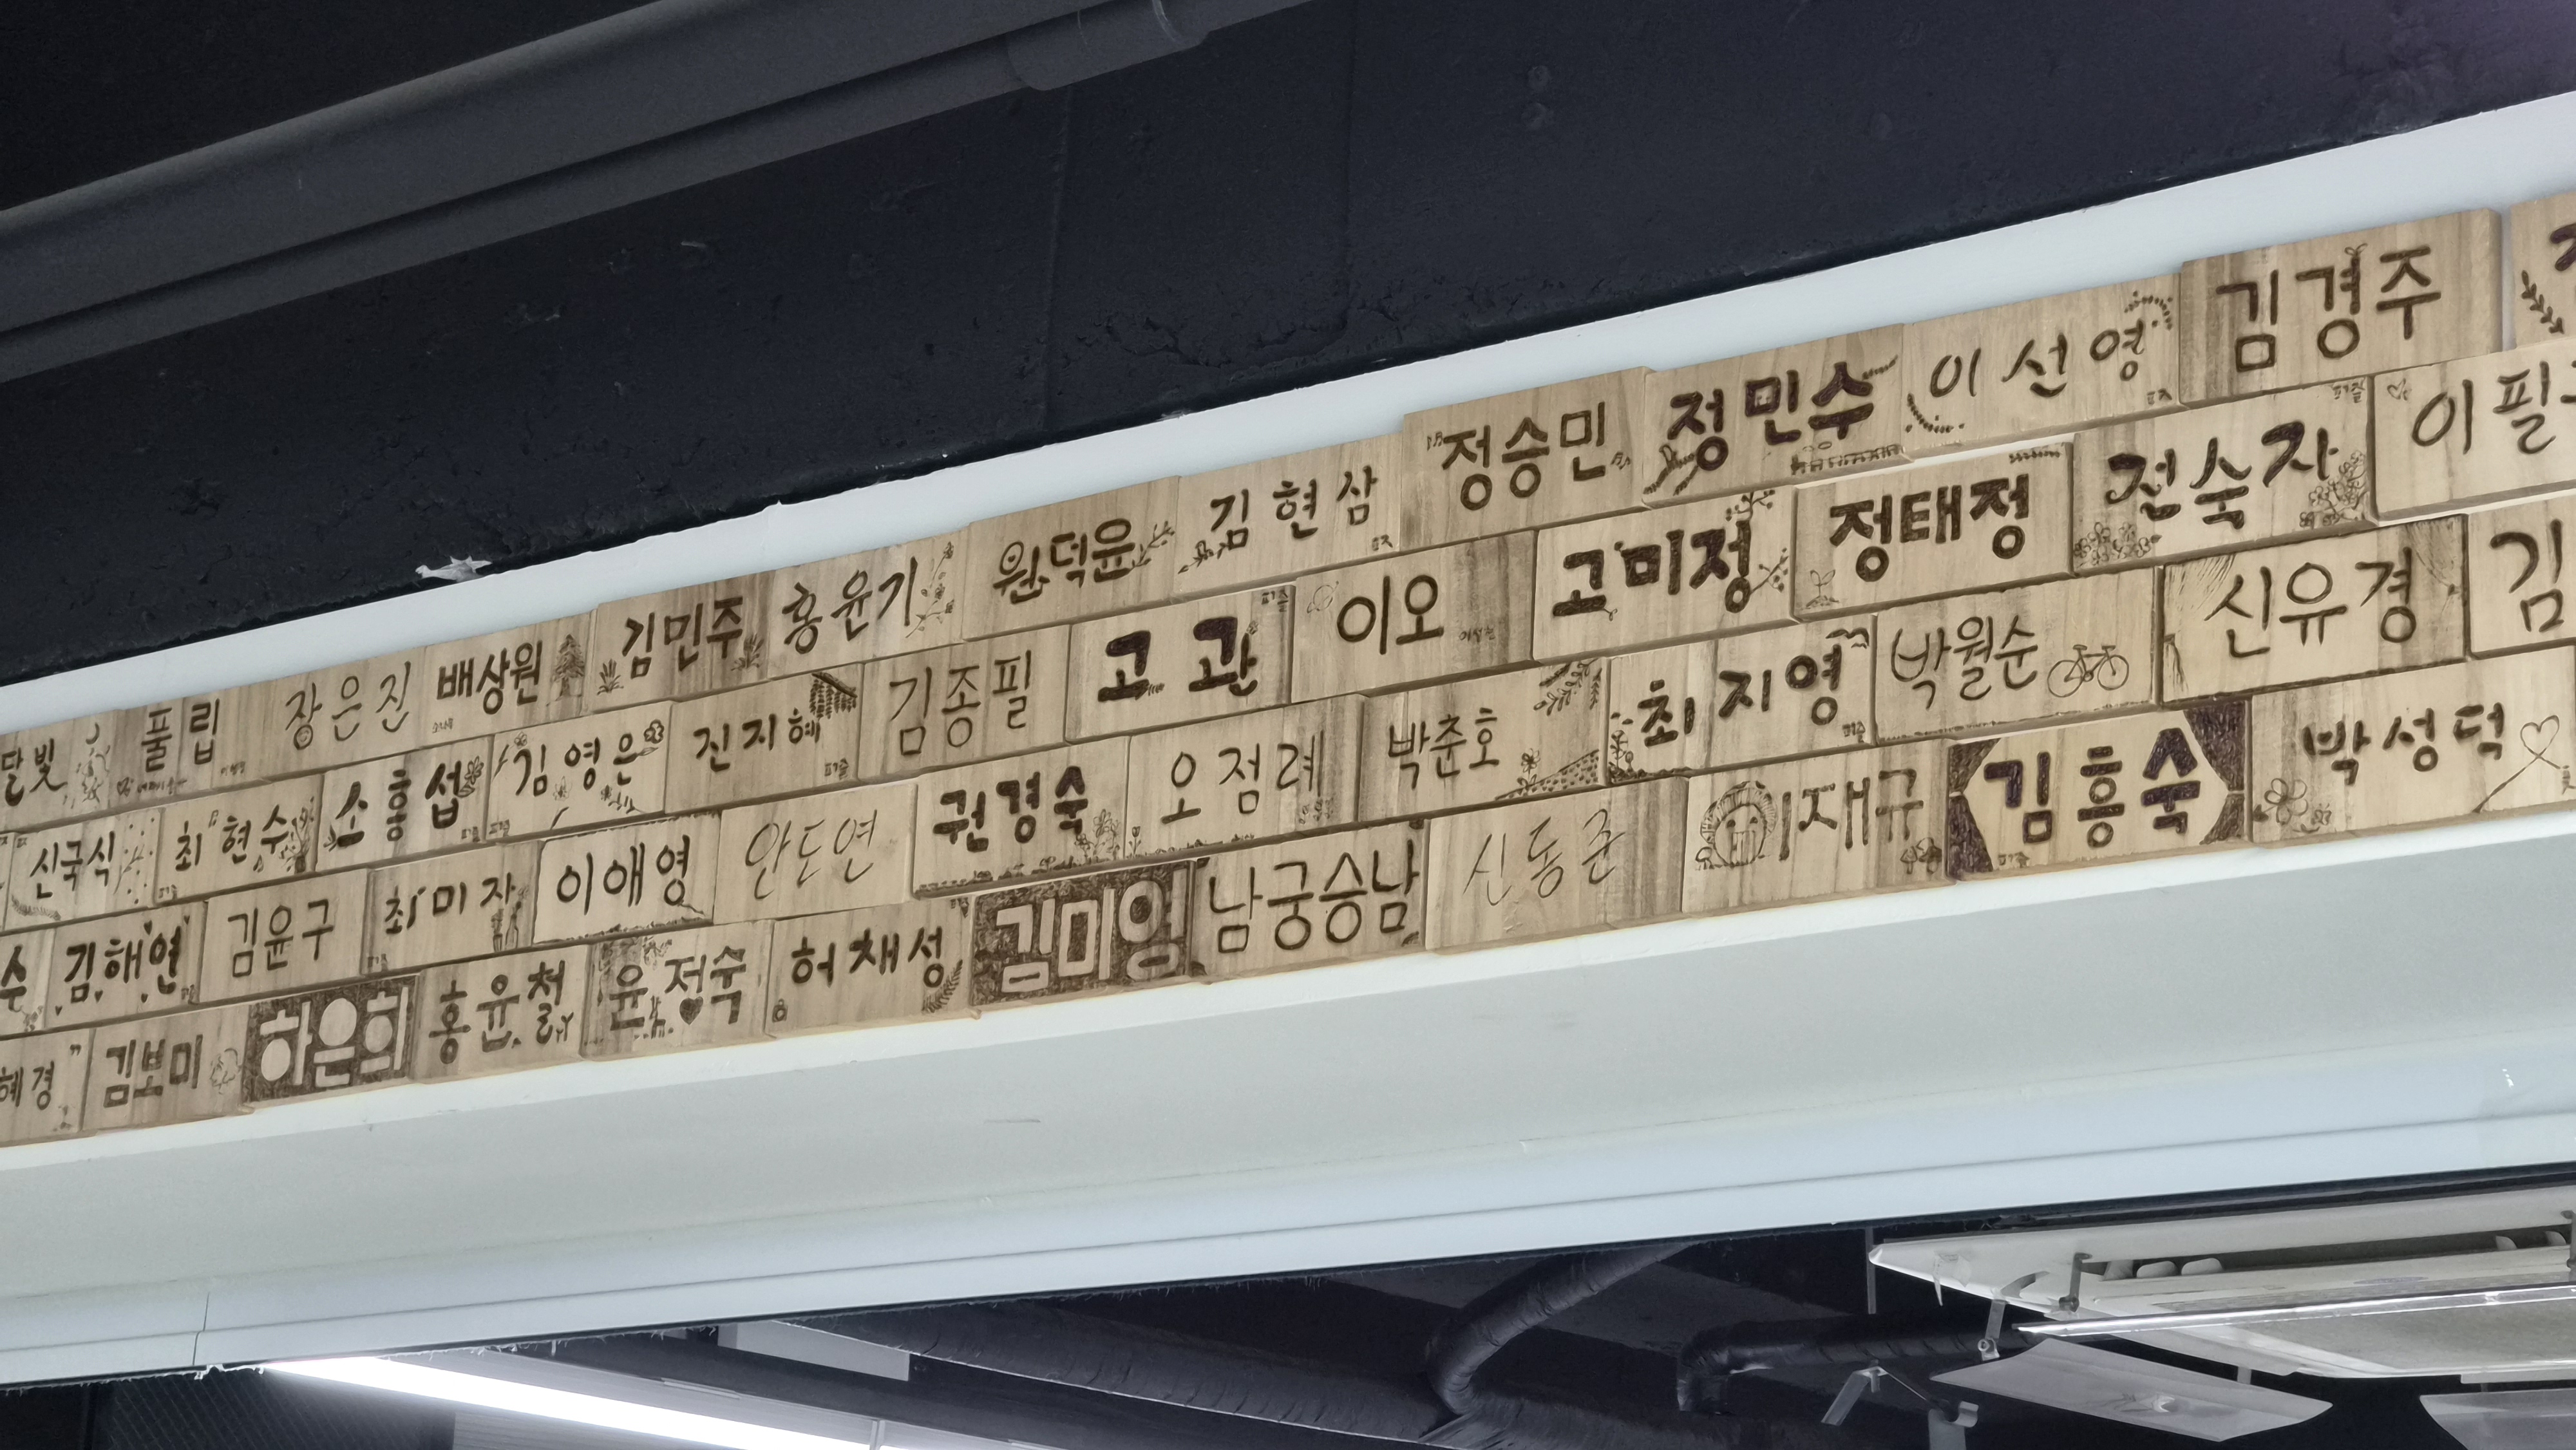 달빛 풀립 장은진 배상원 김민주 홍윤기 원덕윤 김현삼 정승민 정민수 이선영 김경주
신국식 최현수 소홍섭 김영은 진지혜 김종필 고관 이오 고미정 정태정 전숙자 이필
수 김해연 김윤구 최미자 이애영 안도연 권경숙 오점례 박준호 최지영 박월순 신유경 김
혜경 김보미 하은희 홍윤철 윤정숙 허채성 김미영 남궁승남 신동준 이재규 김흥숙 박성덕